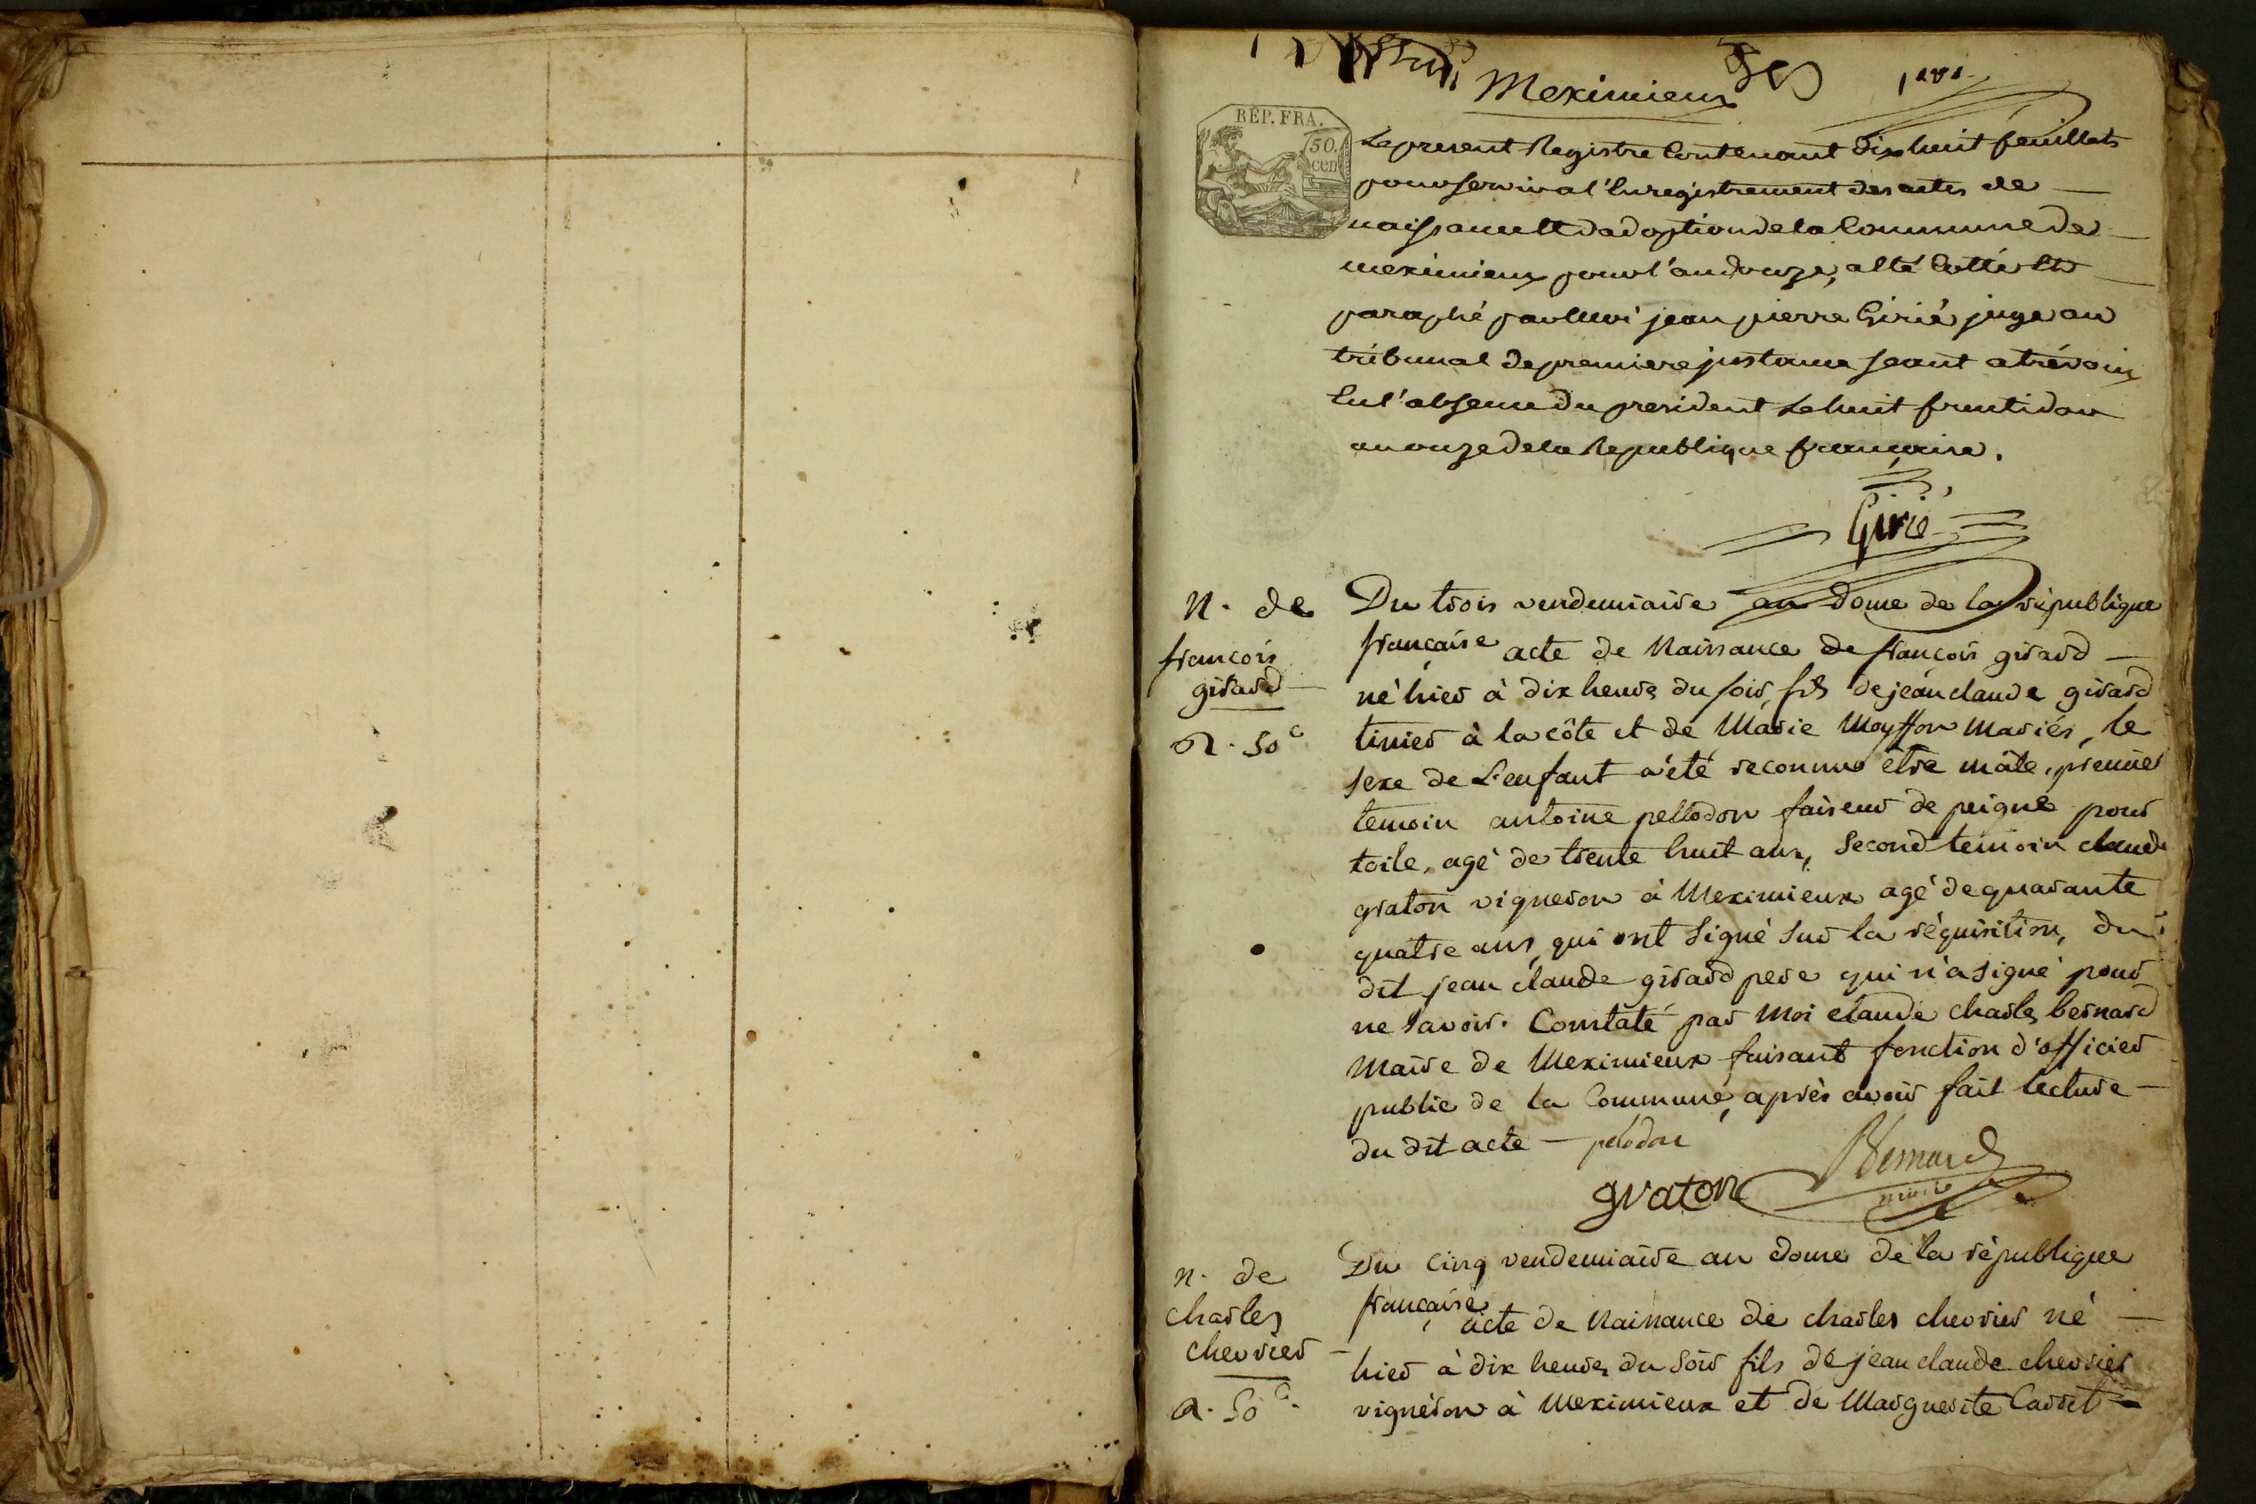 Meximieux
1er
RÉP. FRA.
50.
cen
Le present Registre Contenant Dix huit feuillets
pour servir a l'Enregistrement des actes de
naissance Et dadoption de la Commune de
meximieux pour l'an douze, a Eté Cotté Et
paraphé par Moi jean pierre Girié juge au
tribunal de premiere justance seant a trévoux
En l'absence du president Le huit fructidor
an onze de la Republique francaise.
Girié
N. de
françois
girard
R. 50c
Du trois vendemiaire an Douze de la république
française acte de Naissance de françois girard
né hier à dix heures du soir, fils de jean claude girard
tinier à la côte et de Marie Moysson Mariés, le
sexe de L'enfant a été reconnu être mâle, premier
temoin antoine pellodon faiseur de peigne pour
toile, agé de trente huit ans, Second temoin claude
graton vigneron à Meximieux agé de quarante
quatre ans, qui ont signé sur la réquisition, du
dit jean claude girard pere qui n'a signé pour
ne savoir. Constaté par Moi claude charles bernard
Maire de Meximieux faisant fonction d'officier
public de la Commune, après avoir fait lecture
du dit acte — pelodon
Bernard
graton
maire
n. de
charles
chevrier
R. 50c.
Du Cinq vendemiaire an douze de la république
française
acte de Naissance de charles chevrier né
hier à dix heures du soir fils de jean claude chevrier
vigneron à Meximieux et de Marguerite Carret